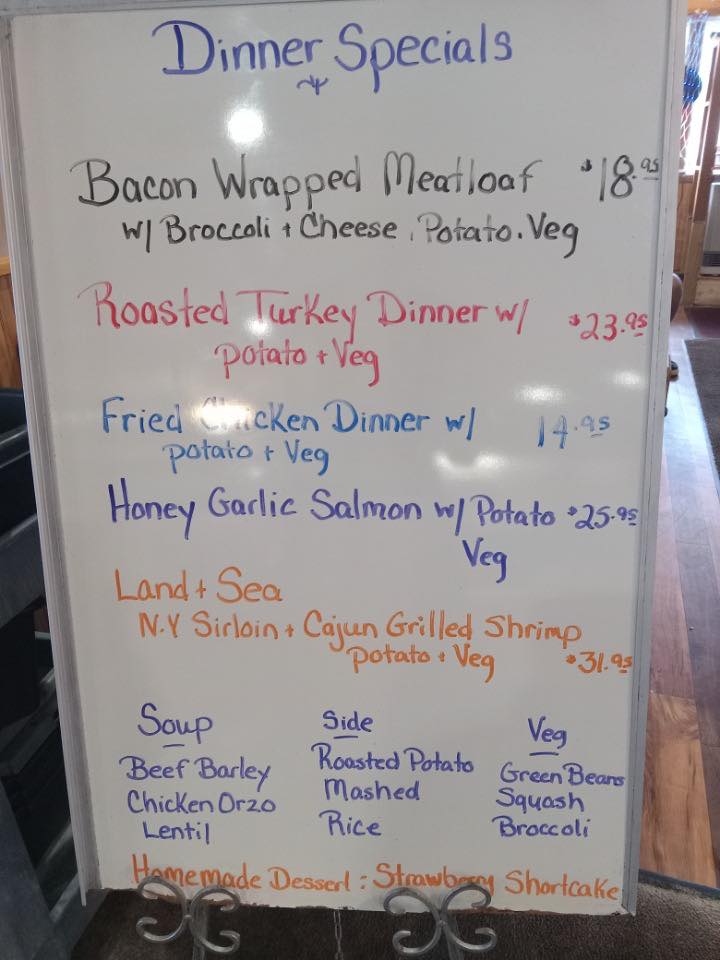 Dinner Specials
Bacon Wrapped Meatloaf $18.95
w/ Broccoli + Cheese, Potato. Veg
Roasted Turkey Dinner w/ $23.95
potato + Veg
Fried Chicken Dinner w/ 14.95
potato + Veg
Honey Garlic Salmon w/ Potato $25.95
Veg
Land + Sea
N.Y Sirloin + Cajun Grilled Shrimp
potato + Veg $31.95
Soup Side Veg
Beef Barley Roasted Potato Green Beans
Chicken Orzo Mashed Squash
Lentil Rice Broccoli
Homemade Dessert : Strawberry Shortcake